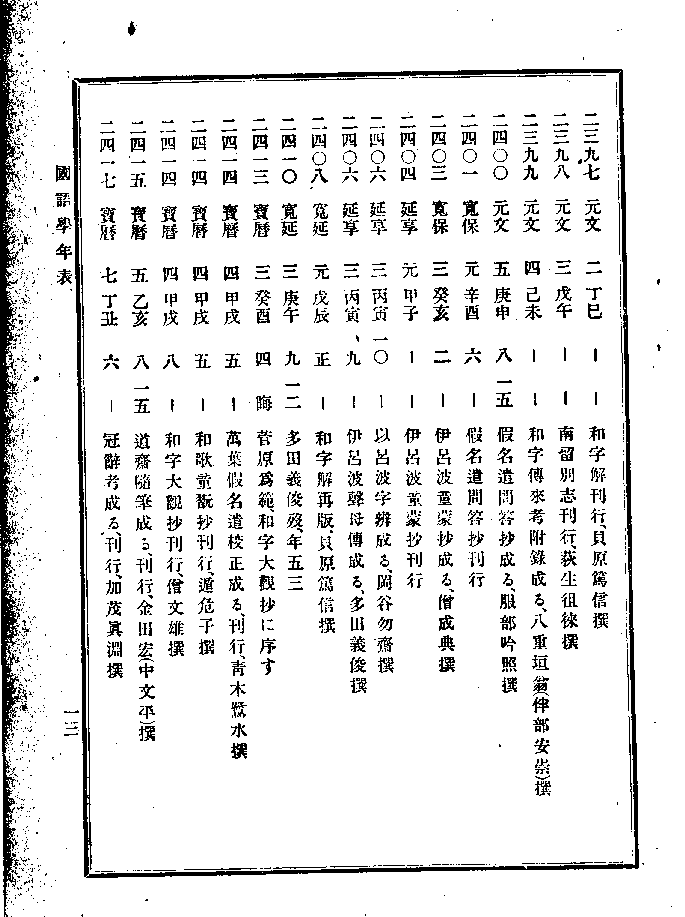 二三九七 元文 二 丁巳 ー ー 和字解刊行、貝原篤信撰
二三九八 元文 三 戊午 ー ー 南留別志刊行、荻生徂徠撰
二三九九 元文 四 己未 ー ー 和字傳來考附錄成る、八重垣翁(伴部安崇)撰
二四〇〇 元文 五 庚申 八 一五 假名遣問答抄成る、服部吟照撰
二四〇一 寬保 元 辛酉 六 ー 假名遣問答抄刊行
二四〇三 寬保 三 癸亥 二 ー 伊呂波童蒙抄成る、僧成典撰
二四〇四 延享 元 甲子 ー ー 伊呂波童蒙抄刊行
二四〇六 延享 三 丙寅 一〇 ー 以呂波字辨成る、岡谷勿齋撰
二四〇六 延享 三 丙寅、九 ー 伊呂波聲母傳成る、多田義俊撰
二四〇八 寬延 元 戊辰 正 ー 和字解再版、貝原篤信撰
二四一〇 寬延 三 庚午 九 一二 多田義俊歿、年五三
二四一三 寶曆 三 癸酉 四 晦 菅原爲範、和字大觀抄に序す
二四一四 寶曆 四 甲戌 五 ー 萬葉假名遣枝正成る、刊行、靑木鷺水撰
二四一四 寶曆 四 甲戌 五 ー 和歌童翫抄刊行、遁危子撰
二四一四 寶曆 四 甲戌 八 ー 和字大觀抄刊行、僧文雄撰
二四一五 寶曆 五 乙亥 八 一五 道齋隨筆成る、刊行、金田宏(中文平)撰
二四一七 寶曆 七 丁丑 六 ー 冠辭考成る、刊行、加茂眞淵撰
國語學年表
一三